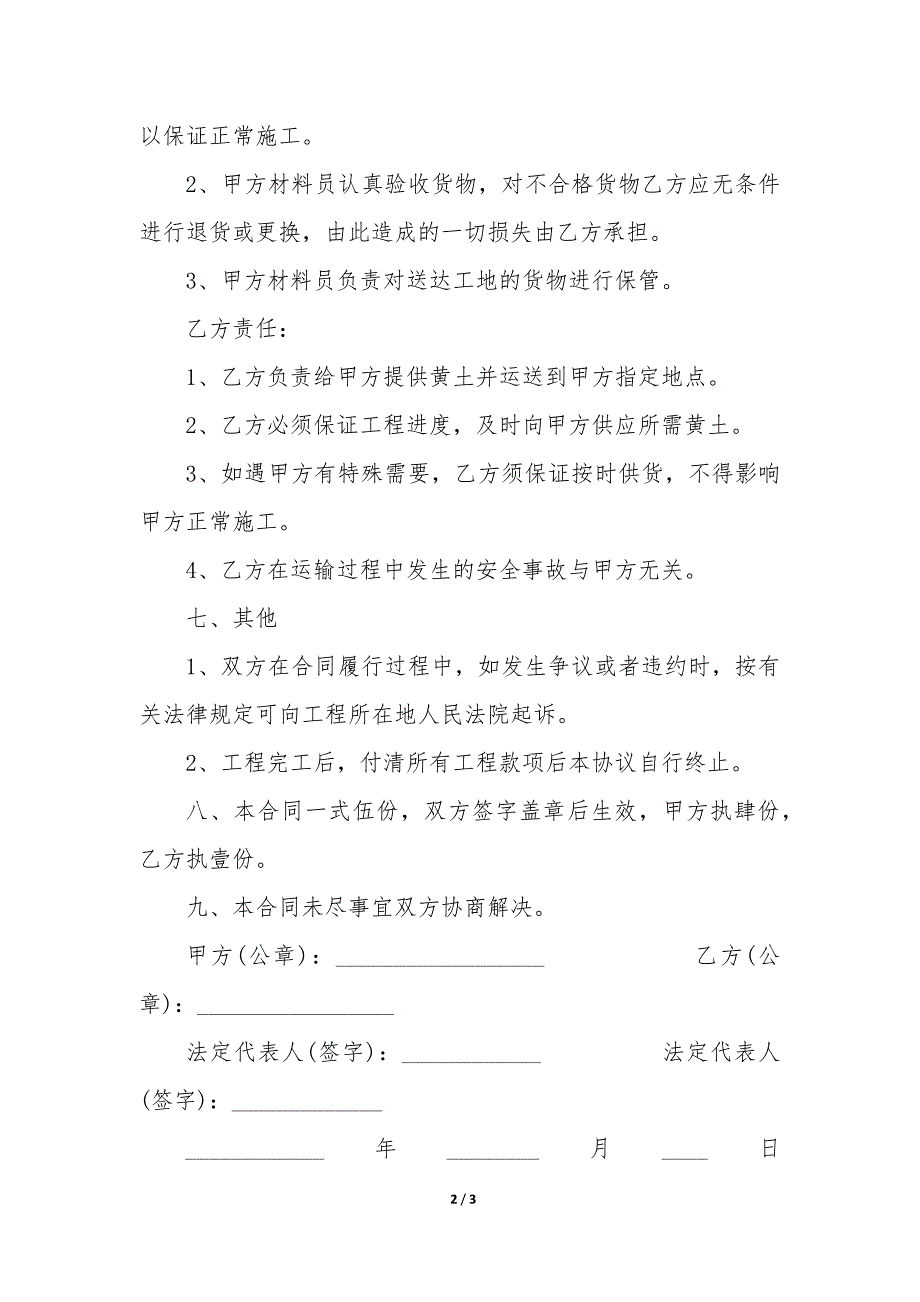 以保证正常施工。
2、甲方材料员认真验收货物，对不合格货物乙方应无条件
进行退货或更换，由此造成的一切损失由乙方承担。
3、甲方材料员负责对送达工地的货物进行保管。
乙方责任：
1、乙方负责给甲方提供黄土并运送到甲方指定地点。
2、乙方必须保证工程进度，及时向甲方供应所需黄土。
3、如遇甲方有特殊需要，乙方须保证按时供货，不得影响
甲方正常施工。
4、乙方在运输过程中发生的安全事故与甲方无关。
七、其他
1、双方在合同履行过程中，如发生争议或者违约时，按有
关法律规定可向工程所在地人民法院起诉。
2、工程完工后，付清所有工程款项后本协议自行终止。
八、本合同一式伍份，双方签字盖章后生效，甲方执肆份，
乙方执壹份。
九、本合同未尽事宜双方协商解决。
甲方(公章)：__________________ 乙方(公
章)：_________________
法定代表人(签字)：____________ 法定代表人
(签字)：_____________
____________ 年 ________ 月 ____ 日
2 / 3